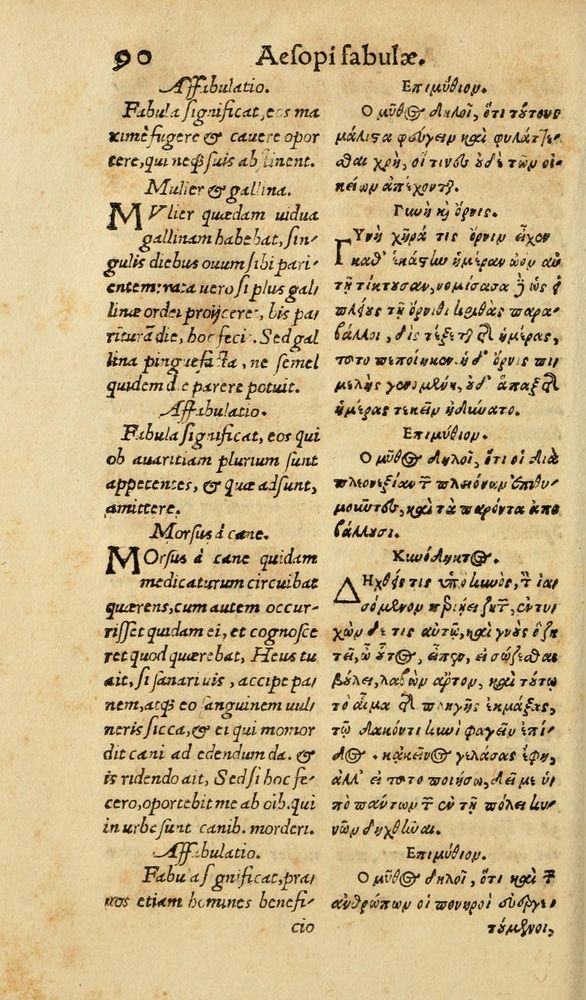 90 Aeſopi fabulæ.
Affabulatio.
Fabula ſignificat, eos ma
ximè fugere & cauere opor
tere, qui neq; ſuis abſtinent.
Mulier & gallina.
MVlier quædam uidua
gallinam habebat, ſin-
gulis diebus ouum ſibi pari-
entem: rata uero ſi plus gal-
linæ ordei proijceret, bis pa-
riturā die, hoc fecit. Sed gal
lina pinguefacta, ne ſemel
quidem die parere potuit.
Affabulatio.
Fabula ſignificat, eos qui
ob auaritiam plurium ſunt
appetentes, & quæ adſunt,
amittere.
Morſus à cane.
MOrſus à cane quidam
medicaturum circuibat
quærens, cum autem occur-
riſſet quidam ei, et cognoſce
ret quod quærebat, Heus tu
ait, ſi ſanari uis, accipe pa-
nem, atq; eo ſanguinem uul
neris ſicca, & ei qui momor
dit cani ad edendum da. &
is ridendo ait, Sed ſi hoc fe-
cero, oportebit me ab oīb. qui
in urbe ſunt canib. morderi.
Affabulatio.
Fabula ſignificat, pra-
uos etiam homines benefi-
cio
Επιμύθιον.
Ο μῦθος δηλοῖ, ὅτι τούτους
μάλιστα φεύγειν καὶ φυλάττε-
σθαι χρὴ, οἵτινες οὐδὲ τῶν οἰ-
κείων ἀπέχονται.
Γυνὴ καὶ ὄρνις.
ΓΥνὴ χήρα τις ὄρνιν εἶχεν
καθ' ἑκάστην ἡμέραν ὠὸν αὐ
τῇ τίκτουσαν, νομίσασα δὲ ὡς εἰ
πλείους τῇ ὄρνιθι κριθὰς παρα-
βάλλοι, δὶς τέξεται τῆς ἡμέρας,
τοῦτο πεποίηκεν. ἡ δ' ὄρνις πι
μελὴς γενομένη, οὐδ' ἅπαξ τῆς
ἡμέρας τεκεῖν ἠδύνατο.
Επιμύθιον.
Ο μῦθος δηλοῖ, ὅτι οἱ διὰ
πλεονεξίαν τῶν πλειόνων ἐπιθυ-
μοῦντες, καὶ τὰ παρόντα ἀπο
βάλλουσι.
Κυνόδηκτος.
ΔΗχθείς τις ὑπὸ κυνὸς, τὸν ἰα-
σόμενον περιῄει ζητῶν, ἐντυ-
χὼν δέ τις αὐτῷ, καὶ γνοὺς ὃ ζη
τεῖ, ὦ οὗτος, εἶπεν, εἰ σώζεσθαι
βούλει, λαβὼν ἄρτον, καὶ τούτῳ
τὸ αἷμα τῆς πληγῆς ἐκμάξας,
τῷ δακόντι κυνὶ φαγεῖν ἐπί-
δος. κἀκεῖνος γελάσας ἔφη,
ἀλλ' εἰ τοῦτο ποιήσω, δεῖ με ὑ-
πὸ πάντων τῶν ἐν τῇ πόλει κυ-
νῶν δηχθῆναι.
Επιμύθιον.
Ο μῦθος δηλοῖ, ὅτι καὶ τῶν
ἀνθρώπων οἱ πονηροὶ εὐεργε-
τούμενοι,